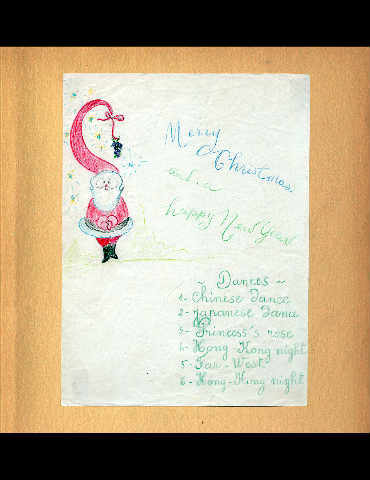 Merry
Christmas
and a
happy New Year
~ Dances ~
1- Chinese dance
2- Japanese dance
3- Princess's rose
4- Hong Kong night
5- Far-West
6- Hong-Kong night